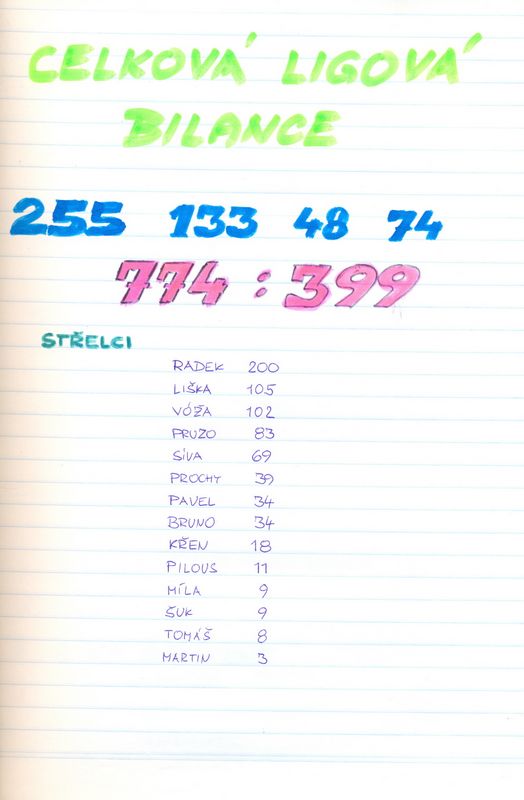 CELKOVÁ LIGOVÁ
BILANCE
255 133 48 74
774 : 399
STŘELCI
RADEK 200
LIŠKA 105
VÓŽA 102
PRUZO 83
SÍVA 69
PROCHY 39
PAVEL 34
BRUNO 34
KŘEN 18
PILOUS 11
MÍLA 9
SUK 9
TOMÁŠ 8
MARTIN 3